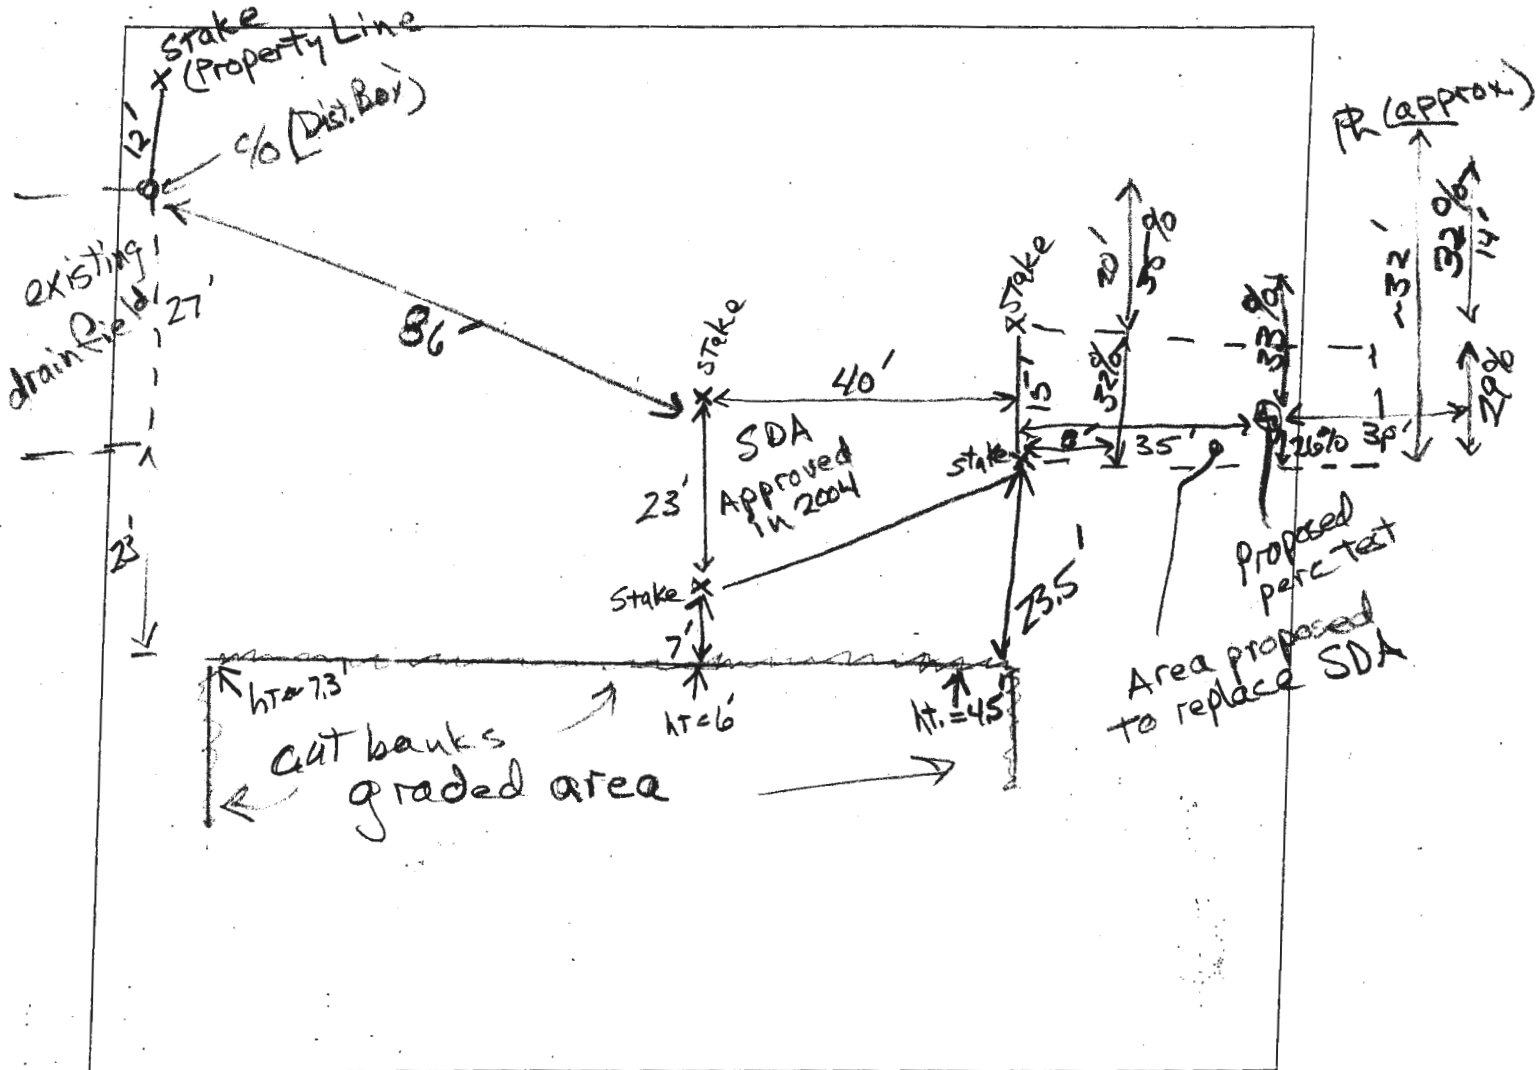 Stake
(Property Line
12'
c/o (Dist. Box)
existing
drainfield
27'
23'
86'
Stake
40'
SDA
Approved
in 2004
23'
Stake
7'
Stake
15'
Stake
23.5'
20'
32%
8'
35'
33%
26%
30'
PL (approx.)
~32'
32%
14'
29%
Proposed
perc test
Area proposed
to replace SDA
ht≈7.3'
ht=6'
ht.=4.5'
cut banks
graded area